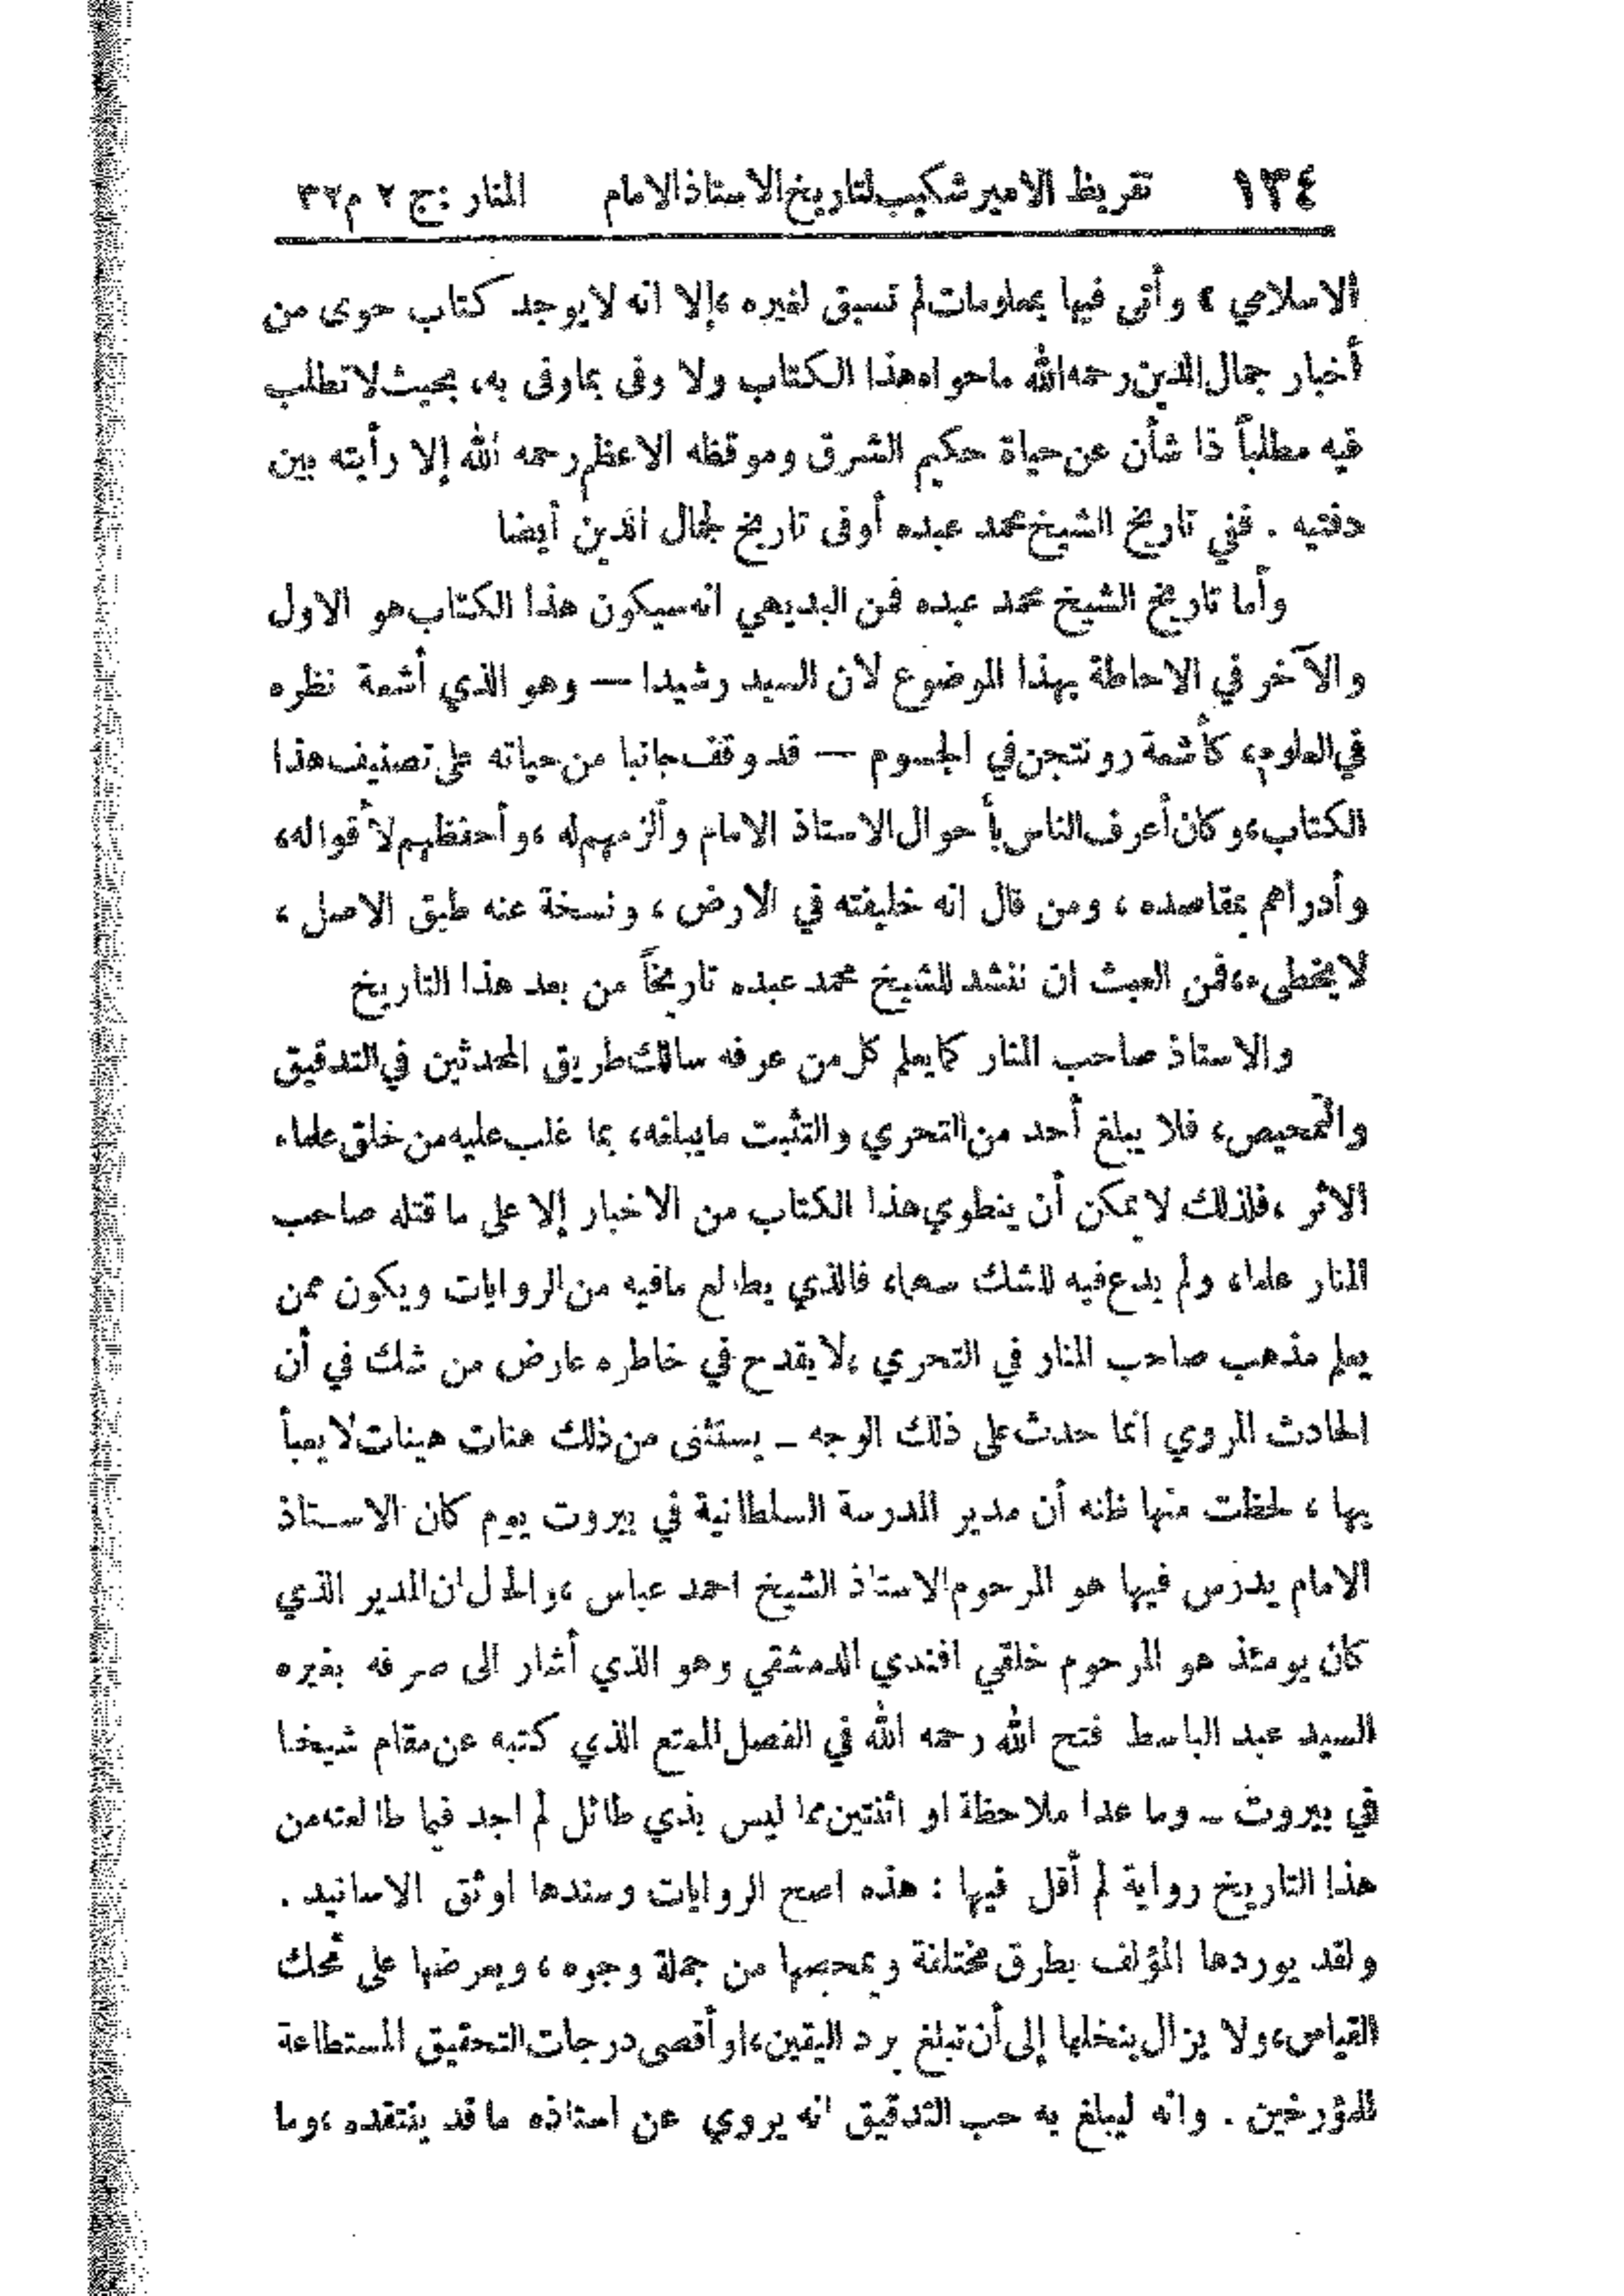 ١٣٤ تقريظ الامير شكيب لتاريخ الاستاذ الامام المنار : ج ٢ م ٣٢
الاسلامي » وأتى فيها بمعلومات لم تسبق لغيره ، إلا انه لا يوجد كتاب حوى من
أخبار جمال الدين رحمه الله ما حواه هذا الكتاب ولا وفى بما وفى به ، بحيث لا تطلب
فيه مطلباً ذا شأن عن حياة حكيم الشرق وموقظه الاعظم رحمه الله إلا رأيته بين
دفتيه . ففي تاريخ الشيخ محمد عبده أوفى تاريخ لجمال الدين أيضا
وأما تاريخ الشيخ محمد عبده فمن البديهي انه سيكون هذا الكتاب هو الاول
والآخر في الاحاطة بهذا الموضوع لأن السيد رشيدا — وهو الذي أشعة نظره
في العلوم ، كأشعة رونتجن في الجسوم — قد وقف جانبا من حياته على تصنيف هذا
الكتاب ، وكان أعرف الناس بأحوال الاستاذ الامام وألزمهم له ، وأحفظهم لأقواله ،
وأدراهم بمقاصده ، ومن قال انه خليفته في الارض ، ونسخة عنه طبق الاصل ،
لا يخطىء ، فمن العبث ان ننشد للشيخ محمد عبده تاريخاً من بعد هذا التاريخ
والاستاذ صاحب المنار كما يعلم كل من عرفه سالك طريق المحدثين في التدقيق
والتمحيص ، فلا يبلغ أحد من التحري والتثبت ما يبلغه ، بما غلب عليه من خلق علماء
الاثر ، فلذلك لا يمكن أن ينطوي هذا الكتاب من الاخبار إلا على ما قتله صاحب
المنار علما ، ولم يدع فيه للشك سهما ، فالذي يطالع ما فيه من الروايات ويكون ممن
يعلم مذهب صاحب المنار في التحري ، لا يقدح في خاطره عارض من شك في أن
الحادث المروي انما حدث على ذلك الوجه – يستثنى من ذلك هنات هينات لا يعبأ
بها ، لحظت منها ظنه أن مدير المدرسة السلطانية في بيروت يوم كان الاستاذ
الامام يدرس فيها هو المرحوم الاستاذ الشيخ احمد عباس ، والحال ان المدير الذي
كان يومئذ هو المرحوم خلقي افندي الدمشقي وهو الذي أشار الى صرفه بغيره
السيد عبد الباسط فتح الله رحمه الله في الفصل الممتع الذي كتبه عن مقام شيخنا
في بيروت – وما عدا ملاحظة او اثنتين مما ليس بذي طائل لم اجد فيما طالعته من
هذا التاريخ رواية لم أقل فيها : هذه اصح الروايات وسندها اوثق الاسانيد .
ولقد يوردها المؤلف بطرق مختلفة ويمحصها من جملة وجوه ، ويعرضها على محك
القياس ، ولا يزال ينخلها إلى أن تبلغ برد اليقين ، او أقصى درجات التحقيق المستطاعة
للمؤرخين . وانه ليبلغ به حب التدقيق انه يروي عن استاذه ما قد ينتقده ، وما